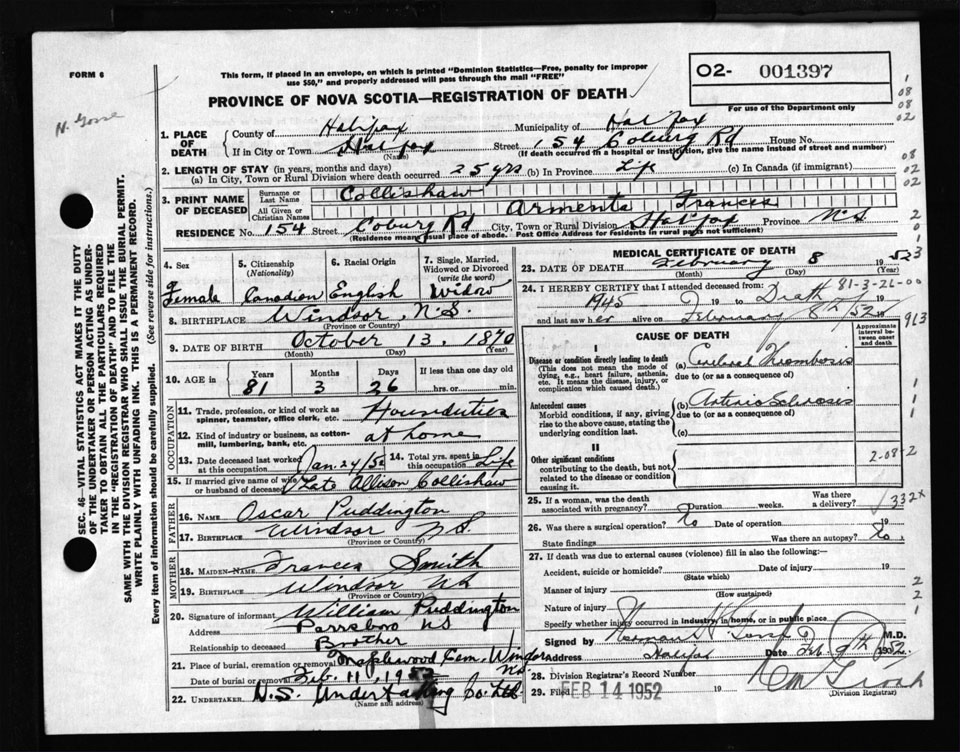 FORM 6
This form, if placed in an envelope, on which is printed "Dominion Statistics—Free, penalty for improper
use $50," and properly addressed will pass through the mail "FREE"
O2- 001397
For use of the Department only
PROVINCE OF NOVA SCOTIA—REGISTRATION OF DEATH
SEC. 46 VITAL STATISTICS ACT MAKES IT THE DUTY
OF THE UNDERTAKER OR PERSON ACTING AS UNDER-
TAKER TO OBTAIN ALL THE PARTICULARS REQUIRED
IN THE "REGISTRATION OF DEATH" AND TO FILE THE
SAME WITH THE DIVISION REGISTRAR WHO SHALL ISSUE THE BURIAL PERMIT.
WRITE PLAINLY WITH UNFADING INK. THIS IS A PERMANENT RECORD.
Every item of information should be carefully supplied. (See reverse side for instructions.)
1. PLACE OF DEATH
County of Halifax Municipality of Halifax
If in City or Town Halifax Street 154 Coburg Rd House No.
(Name) (If death occurred in a hospital or institution, give the name instead of street and number)
2. LENGTH OF STAY (in years, months and days)
(a) In City, Town or Rural Division where death occurred 25 yrs (b) In Province Life (c) In Canada (if immigrant)
3. PRINT NAME OF DECEASED
Surname or Last Name Collishaw
All Given or Christian Names Armenta Frances
RESIDENCE No. 154 Street Coburg Rd City, Town or Rural Division Halifax Province N.S
(Residence means usual place of abode. Post Office Address for residents in rural parts not sufficient)
4. Sex Female
5. Citizenship (Nationality) Canadian
6. Racial Origin English
7. Single, Married, Widowed or Divorced (write the word) Widow
8. BIRTHPLACE Windsor, N.S.
(Province or Country)
9. DATE OF BIRTH October 13, 1870
(Month) (Day) (Year)
10. AGE in Years Months Days If less than one day old
81 3 26 hrs. or min.
OCCUPATION
11. Trade, profession, or kind of work as spinner, teamster, office clerk, etc. Houseduties
12. Kind of industry or business, as cotton-mill, lumbering, bank, etc. at home
13. Date deceased last worked at this occupation Jan. 24/52 14. Total yrs. spent in this occupation Life
15. If married give name of wife or husband of deceased Late Allison Collishaw
FATHER
16. Name Oscar Puddington
17. Birthplace Windsor N.S.
(Province or Country)
MOTHER
18. Maiden Name Frances Smith
19. Birthplace Windsor NS
(Province or Country)
20. Signature of informant William Puddington
Address Parrsboro NS
Relationship to deceased Brother
21. Place of burial, cremation or removal Maplewood Cem. Windsor N.S.
Date of burial or removal Feb. 11, 1952
22. UNDERTAKER N.S. Undertaking Co. Ltd.
(Name and address)
MEDICAL CERTIFICATE OF DEATH
23. DATE OF DEATH February 8 1952
(Month) (Day) (Year)
24. I HEREBY CERTIFY that I attended deceased from:
81-3-26-00
1945 19 to Death 19
and last saw her alive on February 8th/52 19
CAUSE OF DEATH
Approximate interval between onset and death
I
Disease or condition directly leading to death
(This does not mean the mode of dying, e.g., heart failure, asthenia, etc. It means the disease, injury, or complication which caused death.)
(a) Cerebral Thrombosis
due to (or as a consequence of)
Antecedent causes
Morbid conditions, if any, giving rise to the above cause, stating the underlying condition last.
(b) Arterio Sclerosis
due to (or as a consequence of)
(c)
II
Other significant conditions
contributing to the death, but not related to the disease or condition causing it
2-08-2
25. If a woman, was the death associated with pregnancy? Duration weeks. Was there a delivery?
332x
26. Was there a surgical operation? No Date of operation 19
State findings Was there an autopsy? No.
27. If death was due to external causes (violence) fill in also the following:—
Accident, suicide or homicide? Date of injury 19
(State which)
Manner of injury
(How sustained)
Nature of injury
Specify whether injury occurred in industry, in home, or in public place
Signed by Norman H. Gosse M.D.
Address Halifax Date Feb. 9th 1952.
28. Division Registrar's Record Number
29. Filed FEB 14 1952 19
(Division Registrar)
N. Gosse
08
08
02
08
02
02
913